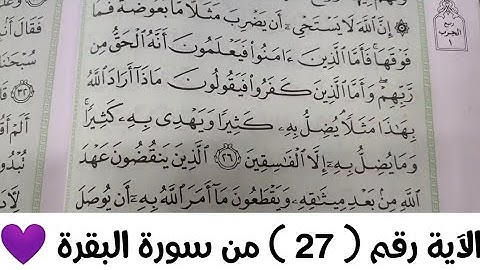 ۞ إِنَّ اللَّهَ لَا يَسْتَحْيِ أَن يَضْرِبَ مَثَلًا مَّا بَعُوضَةً فَمَا
فَوْقَهَا فَأَمَّا الَّذِينَ ءَامَنُوا فَيَعْلَمُونَ أَنَّهُ الْحَقُّ مِن
رَّبِّهِمْ وَأَمَّا الَّذِينَ كَفَرُوا فَيَقُولُونَ مَاذَا أَرَادَ اللَّهُ
بِهَٰذَا مَثَلًا يُضِلُّ بِهِ كَثِيرًا وَيَهْدِي بِهِ كَثِيرًا
وَمَا يُضِلُّ بِهِ إِلَّا الْفَاسِقِينَ ٢٦ الَّذِينَ يَنقُضُونَ عَهْدَ
اللَّهِ مِن بَعْدِ مِيثَاقِهِ وَيَقْطَعُونَ مَا أَمَرَ اللَّهُ بِهِ أَن يُوصَلَ
ربع
الحزب
١
فَقَالَ
٣٢
الآية رقم ( 27 ) من سورة البقرة 💜